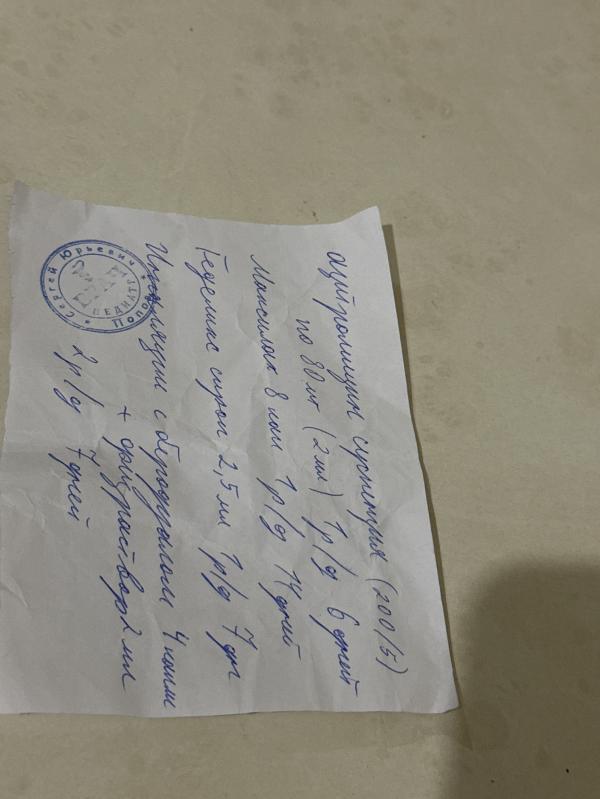 Азитромицин суспензия (200/5)
по 80 мг (2 мл) 1р/д 6 дней
Максилак 8 кап 1р/д 14 дней
Геделикс сироп 2,5 мл 1р/д 7 дн
Ингаляции с беродуалом 4 капли
+ физраствор 2 мл
2р/д 7 дней
Сергей Юрьевич * Попов *
ПЕДИАТР